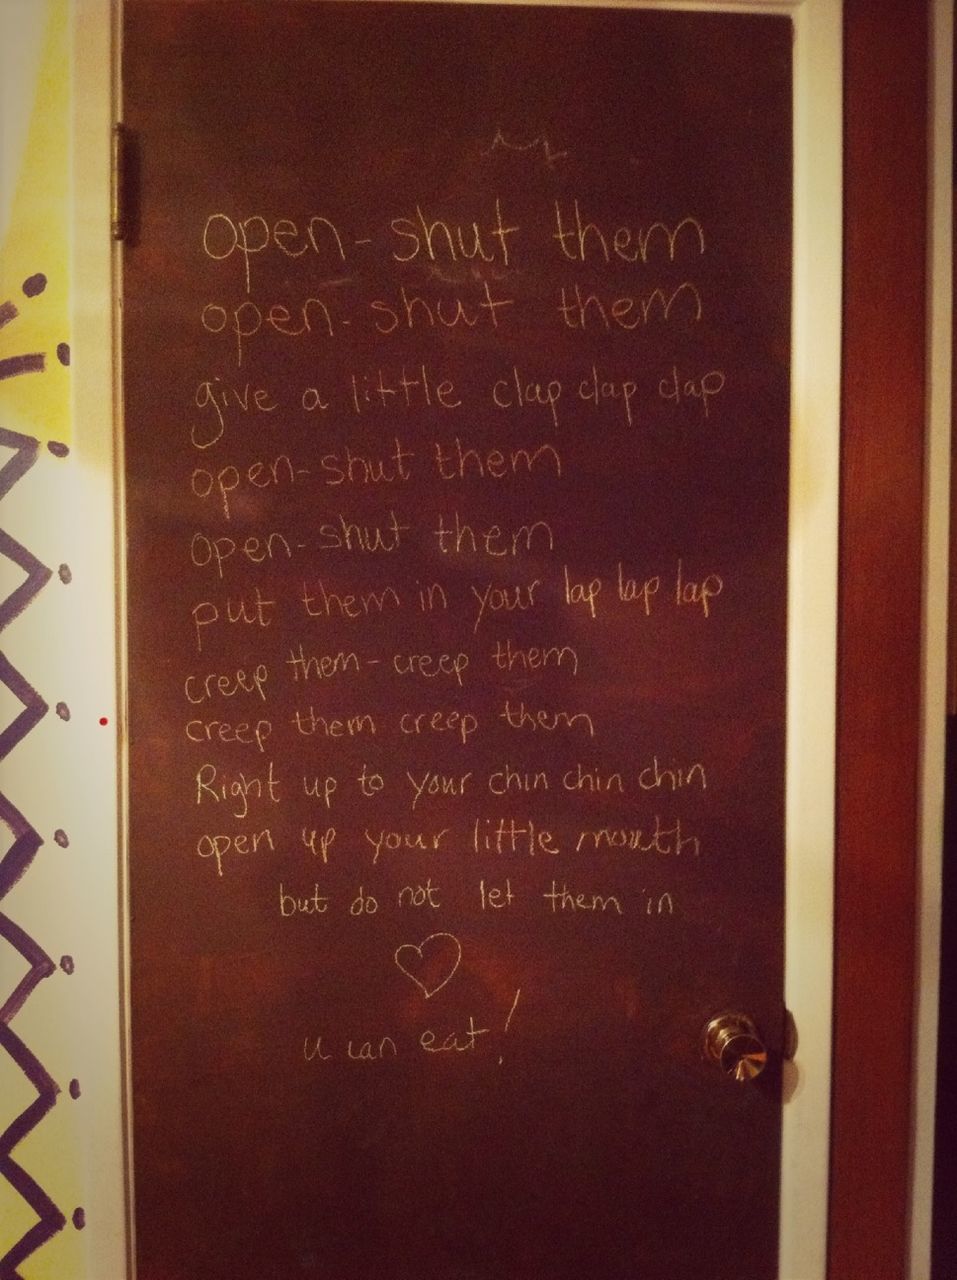 open-shut them
open-shut them
give a little clap clap clap
open-shut them
open-shut them
put them in your lap lap lap
creep them-creep them
creep them creep them
Right up to your chin chin chin
open up your little mouth
but do not let them in
u can eat!